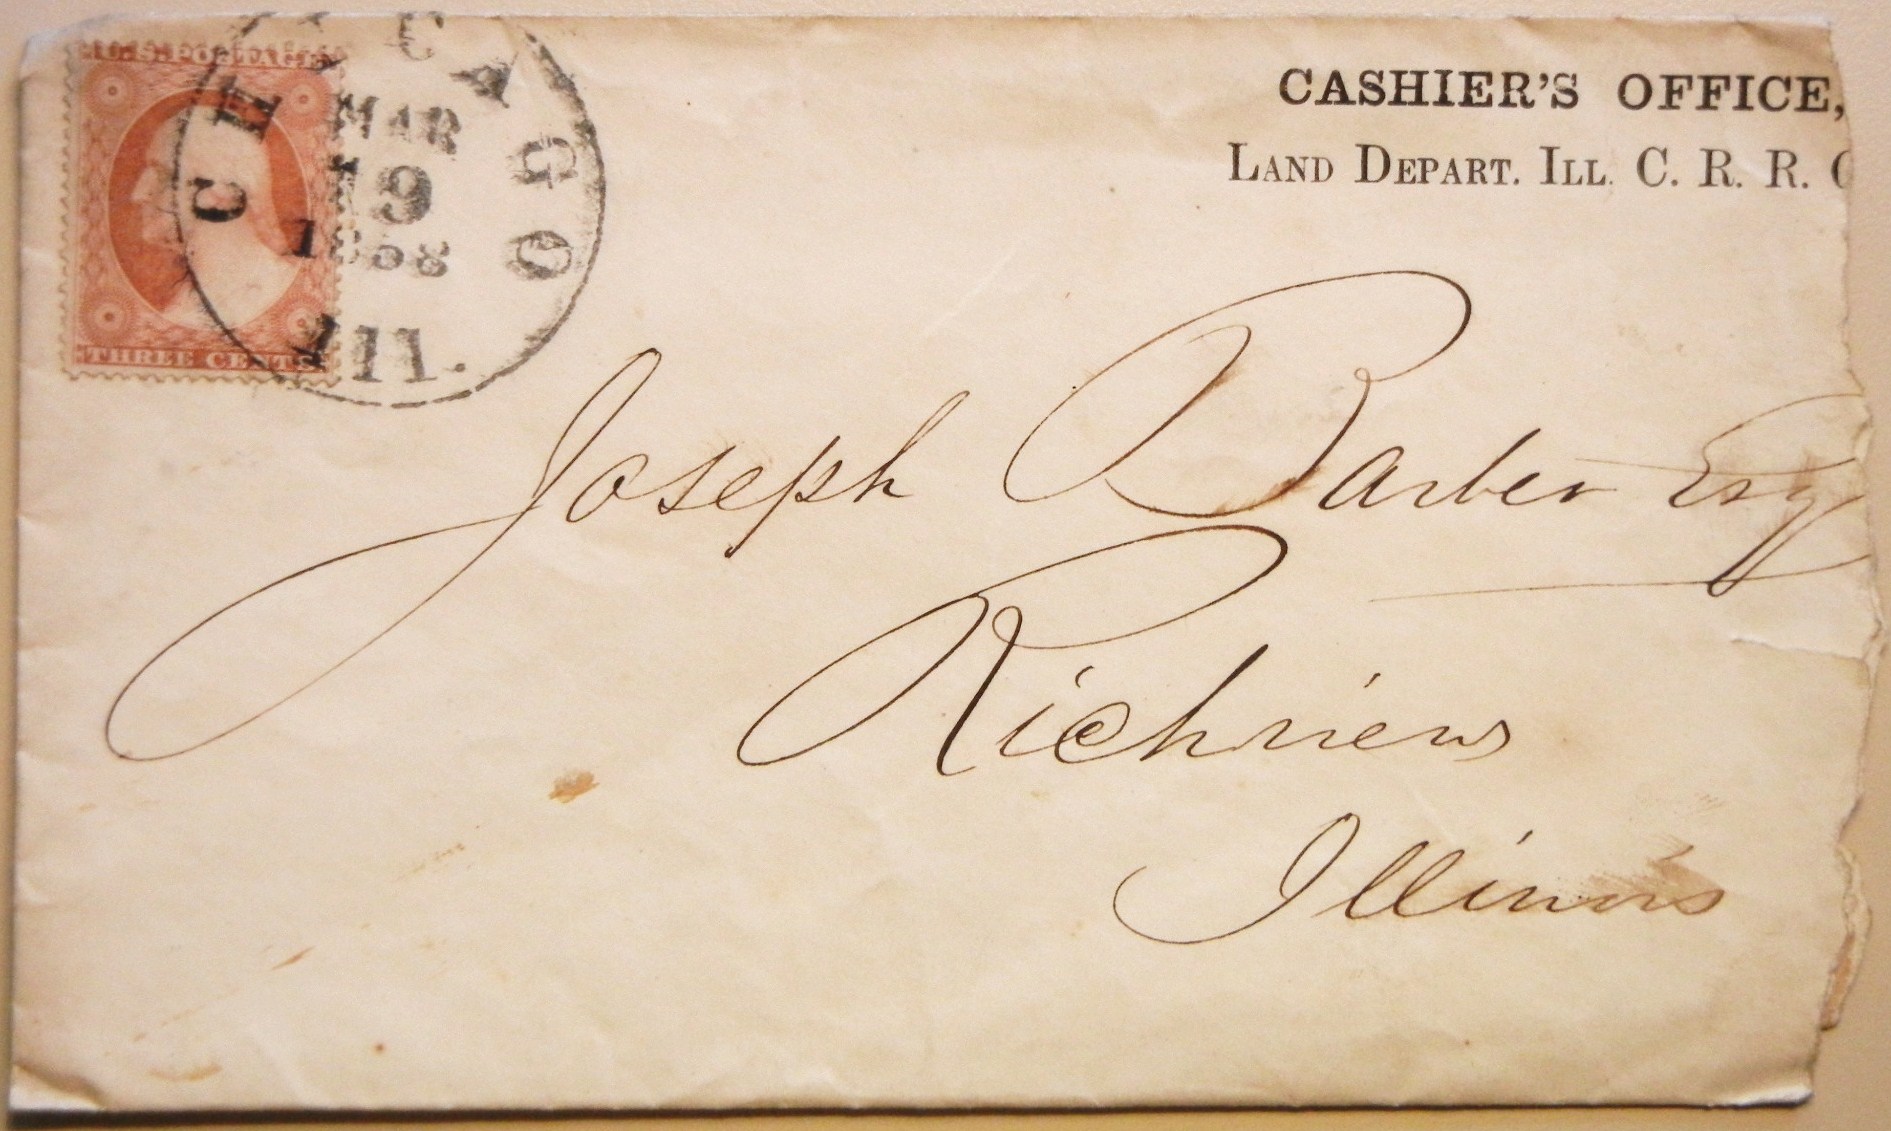 U.S. POSTAGE
THREE CENTS
CHICAGO
MAR
19
1858
Ill.
CASHIER'S OFFICE,
LAND DEPART. ILL. C. R. R. C
Joseph Barber Esq
Richview
Illinois